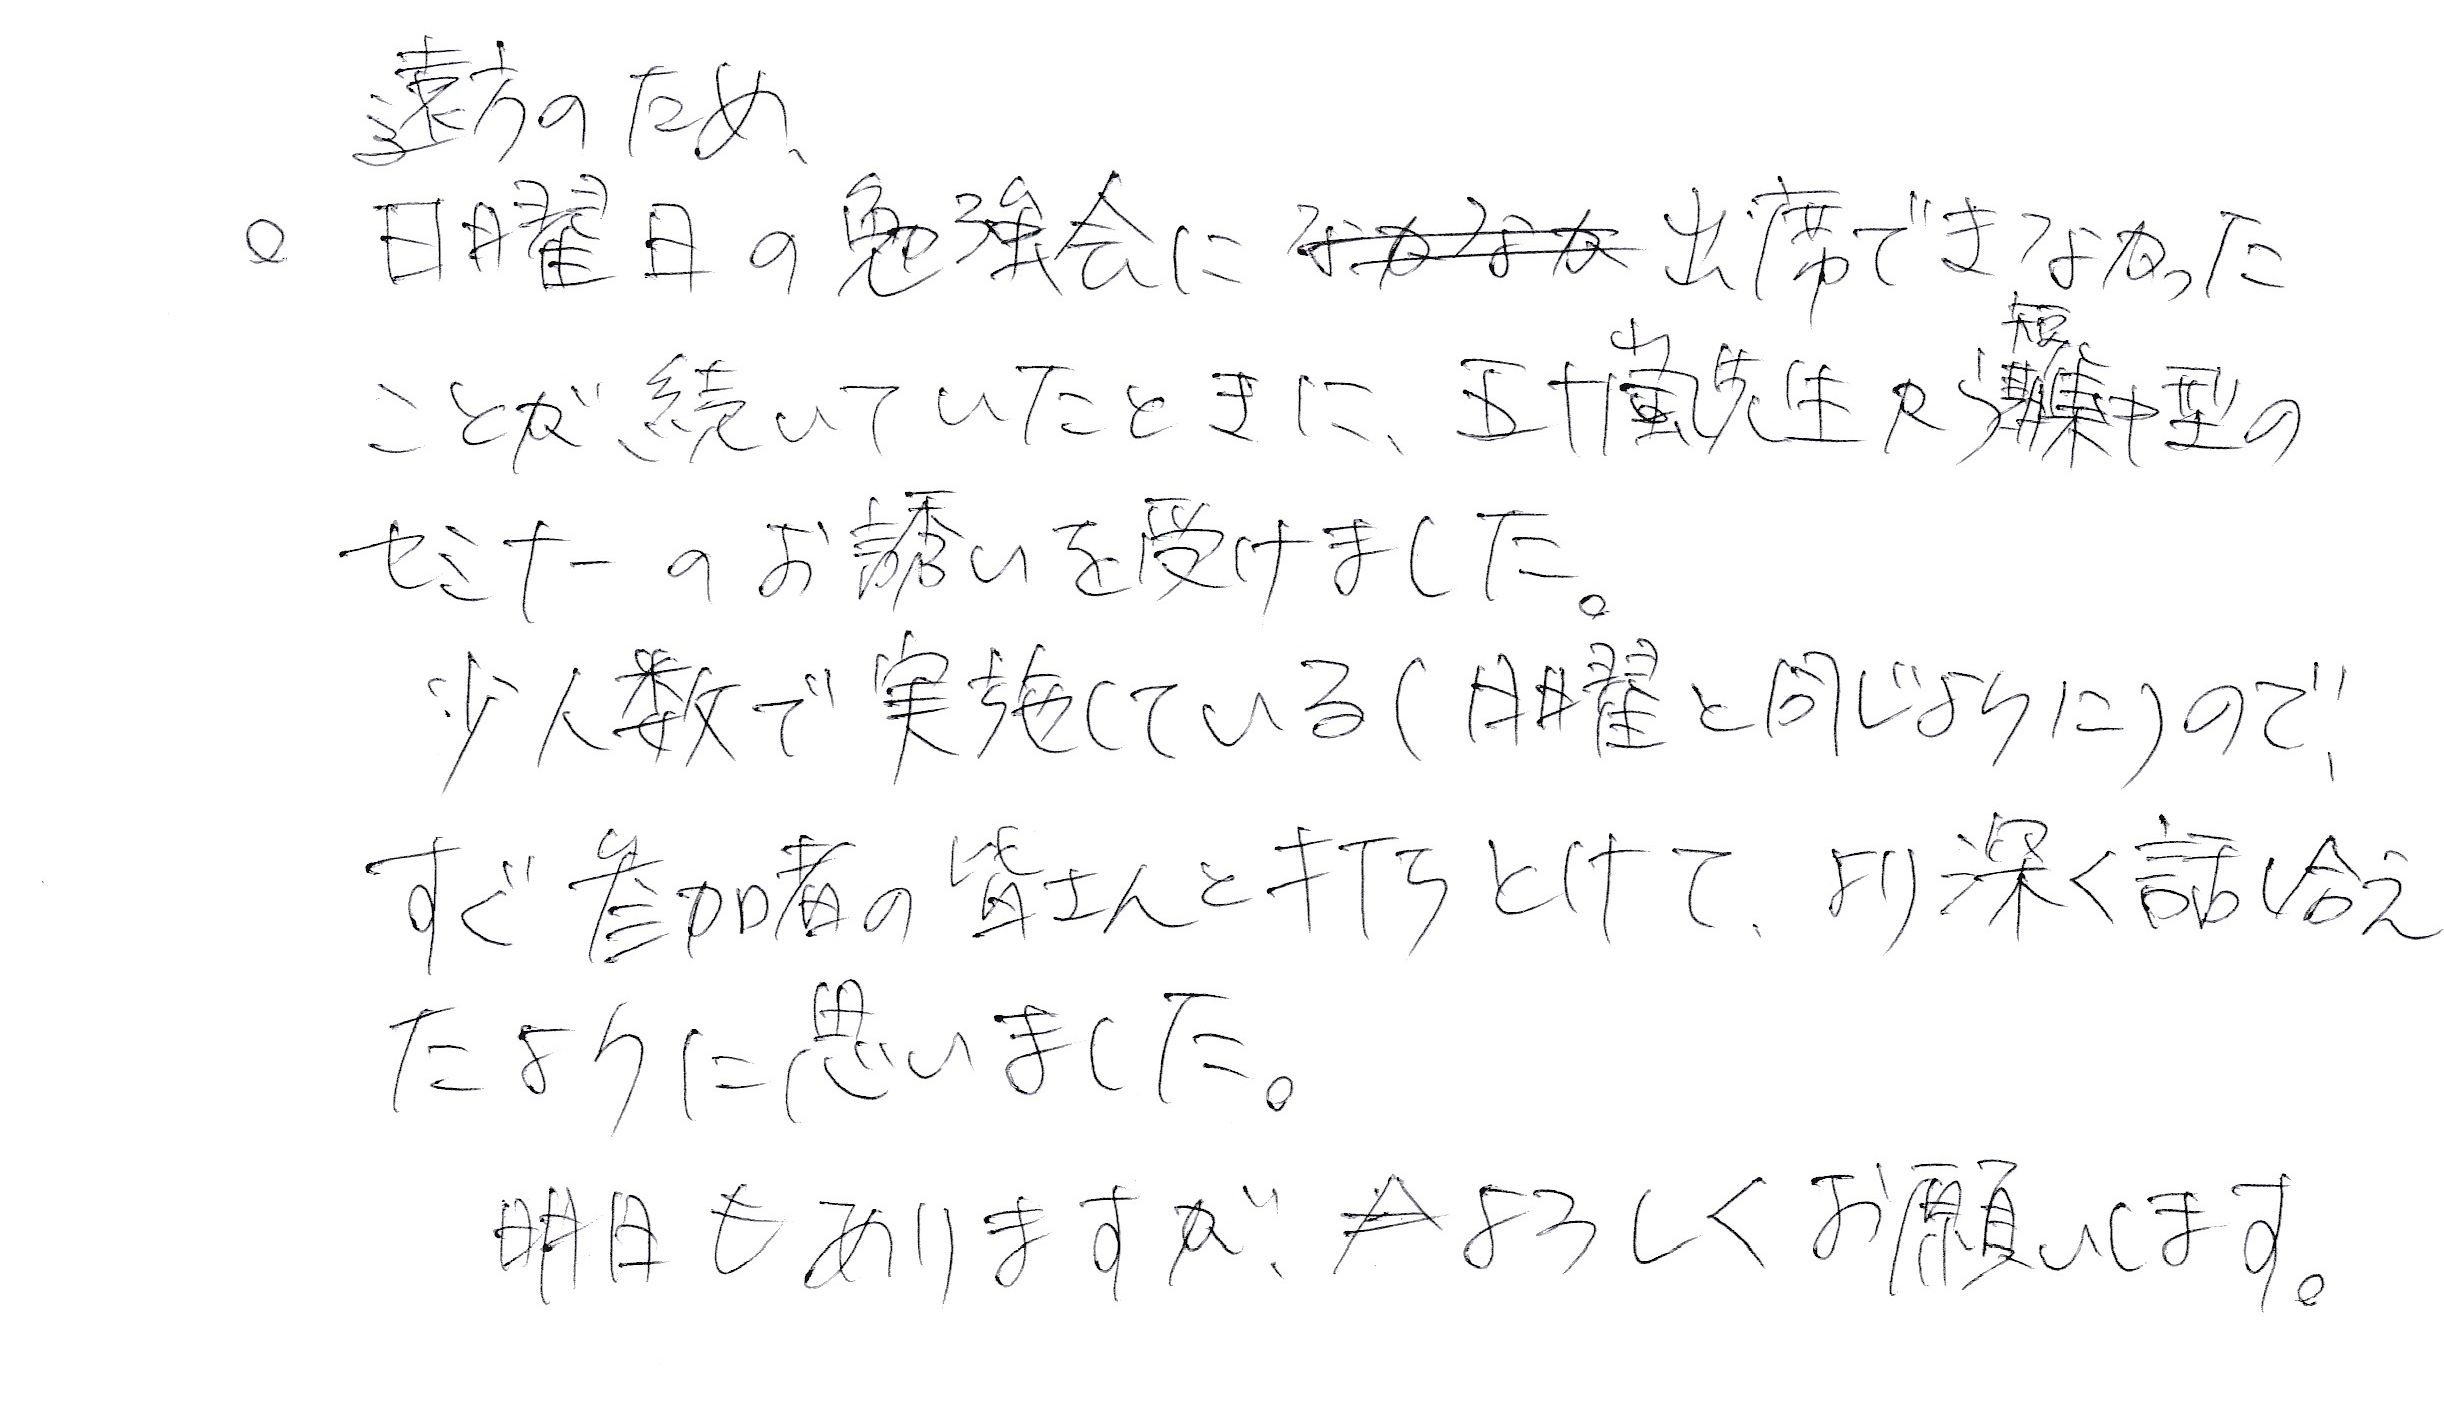 遠方のため、
○ 日曜日の勉強会に なかなか 出席できなかった
ことが続いていたときに、五十嵐先生から短期集中型の
セミナーのお誘いを受けました。
少人数で実施している(日曜と同じように)ので、
すぐ参加者の皆さんと打ちとけて、より深く話し合え
たように思いました。
明日もありますが、よろしくお願いします。